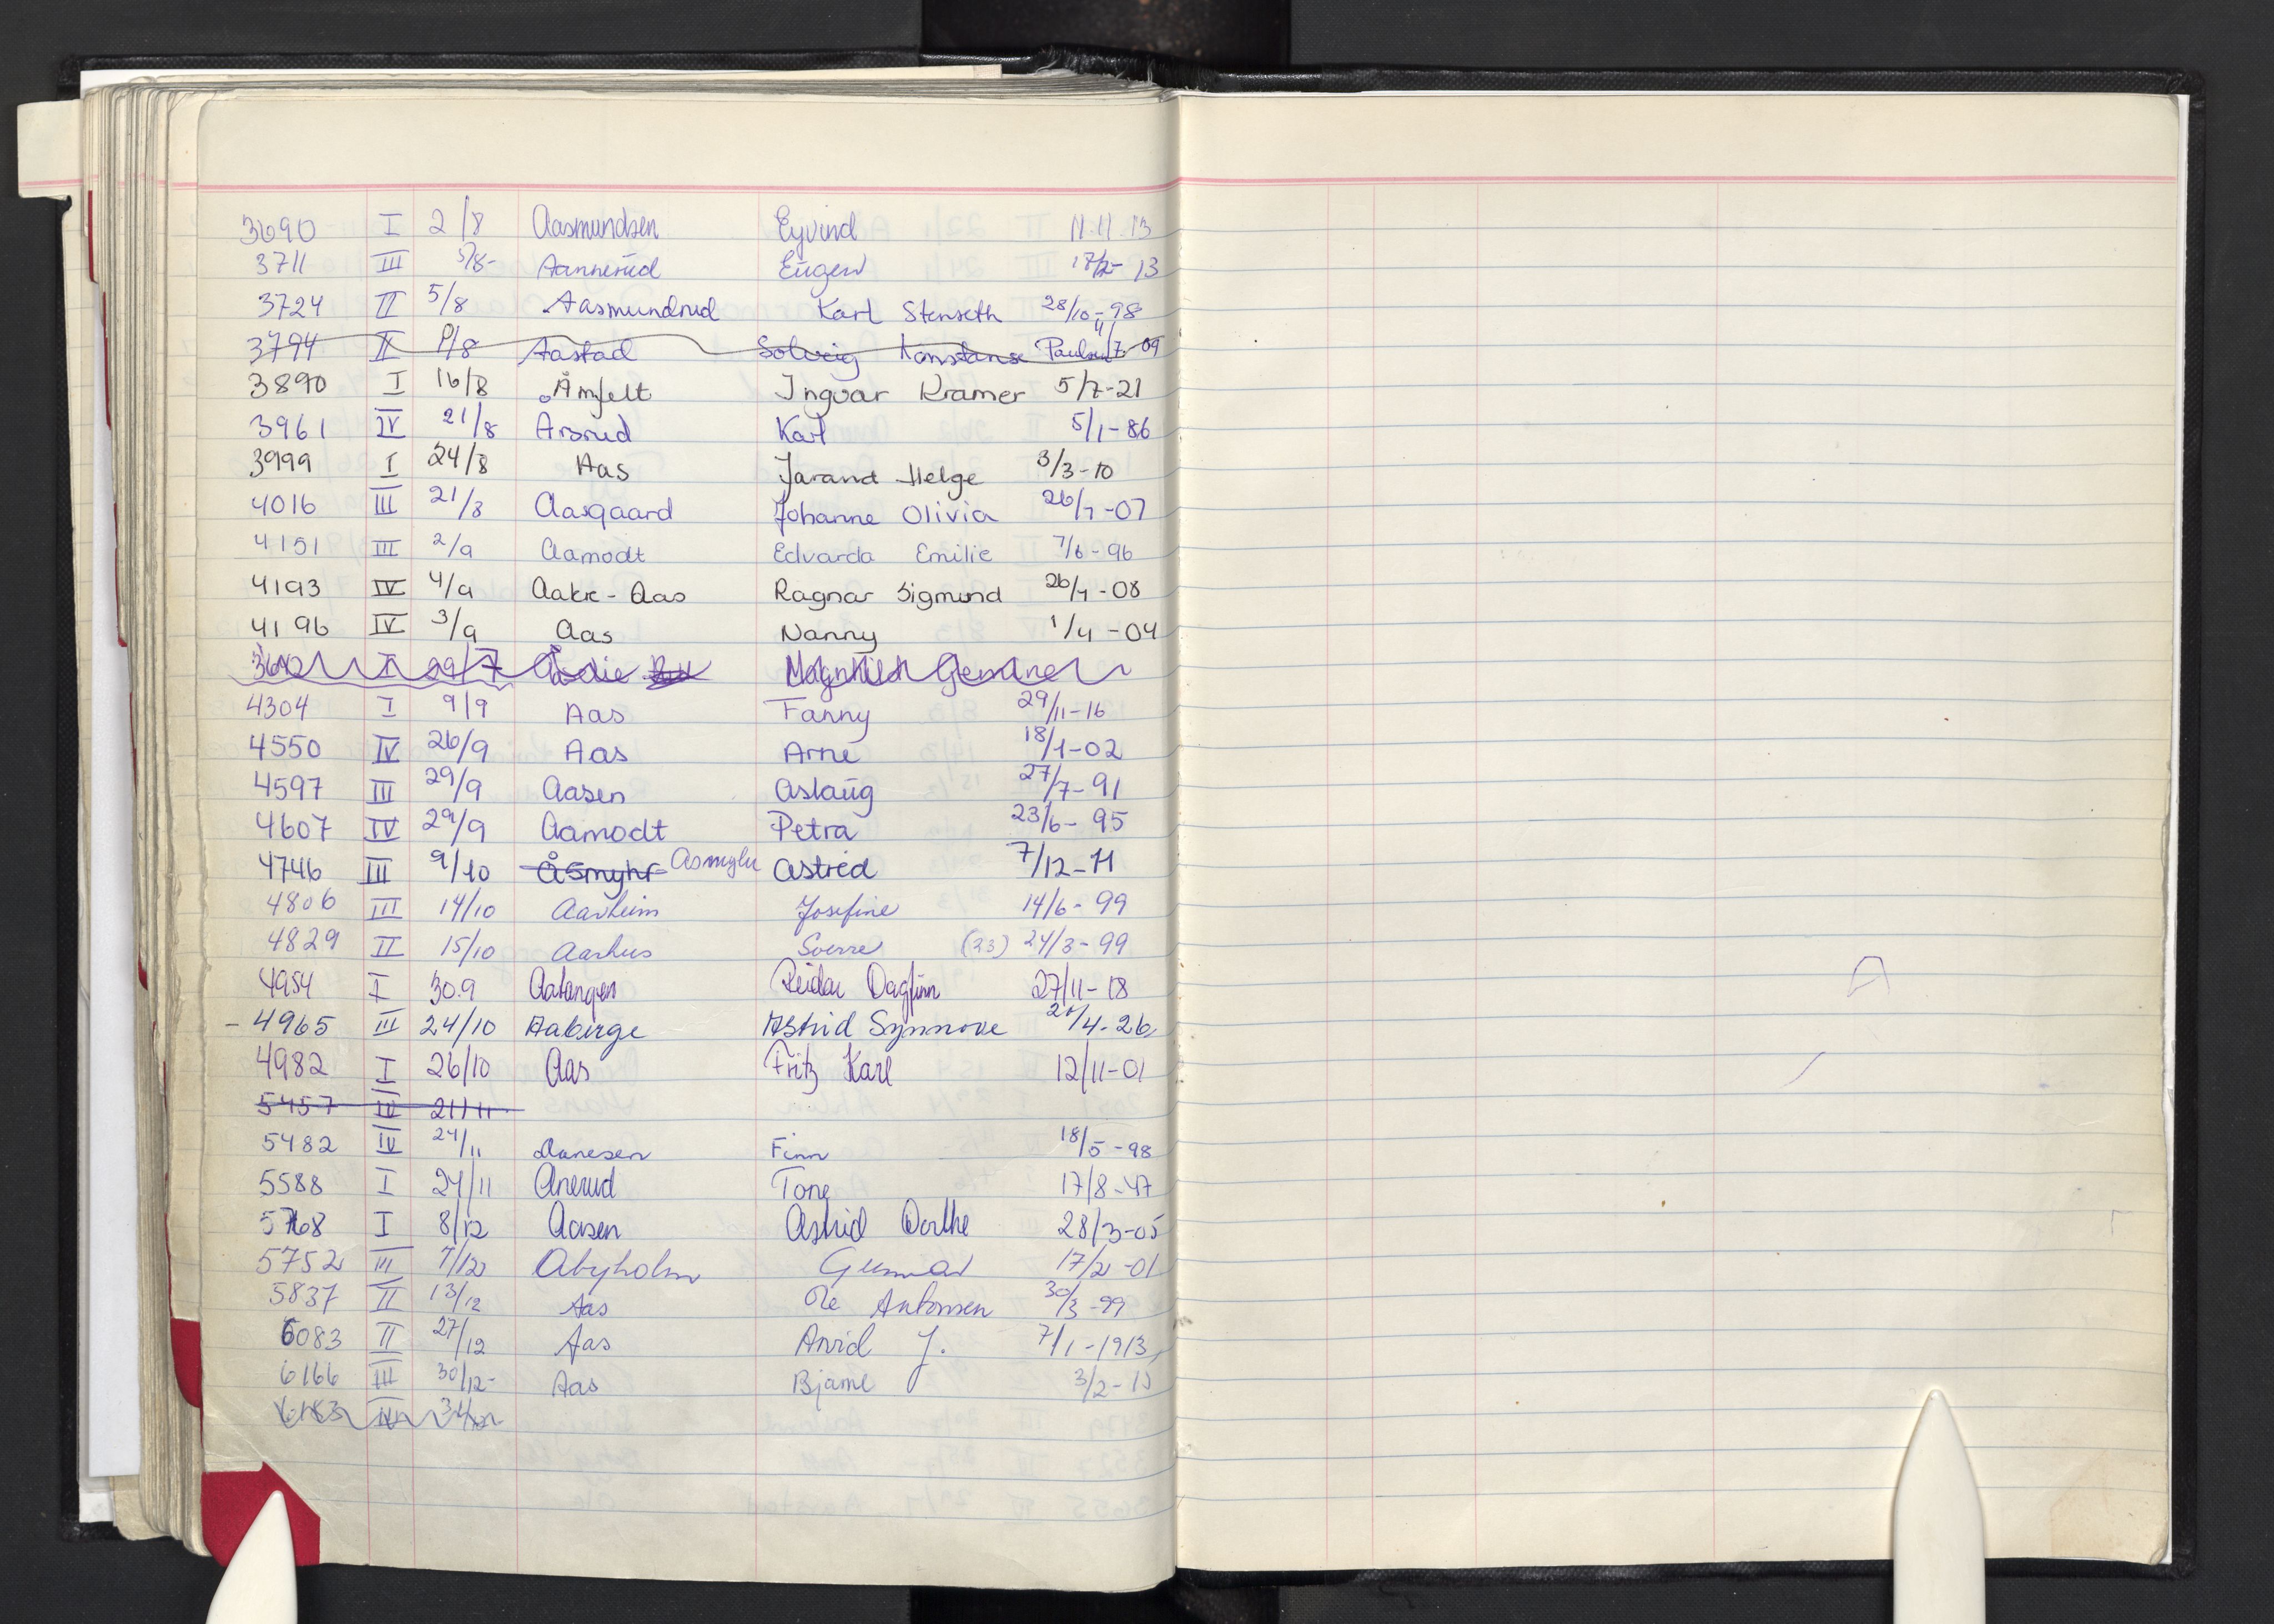 3690 I 2/8 Aasmundsen Eyvind 11.11.13
3711 III 5/8- Aannerud Eugen 17/2- 13
3724 II 5/8 Aasmundrud Karl Stenseth 28/10-98
3794 II 9/8 Aastad Solveig Konstanse Paulsen 4/7-09
3890 I 16/8 Åmfelt Ingvar Kramer 5/7-21
3961 IV 21/8 Årsrud Karl 5/1-86
3999 I 24/8 Aas Jarand Helge 3/3-10
4016 III 21/8 Aasgaard Johanne Olivia 26/7-07
4151 III 2/9 Aamodt Edvarda Emilie 7/6-96
4193 IV 4/9 Aakre-Aas Ragnar Sigmund 26/7-08
4196 IV 3/9 Aas Nanny 1/4-04
I 29/7 Magnhild
4304 I 9/9 Aas Fanny 29/11-16
4550 IV 26/9 Aas Arne 18/1-02
4597 III 29/9 Aasen Aslaug 27/7-91
4607 IV 29/9 Aamodt Petra 23/6-95
4746 III 9/10 Åsmyhr Aasmyhr Astrid 7/12-11
4806 III 14/10 Aarheim Josefine 14/6-99
4829 II 15/10 Aarhus Sverre (23) 24/3-99
4954 I 30.9 Aatangen Reidar Dagfinn 27/11-18
- 4965 III 24/10 Aaberge Astrid Synnøve 4-26
4982 I 26/10 Aas Fritz Karl 12/11-01
5457 IV 21/11
5482 IV 24/11 Aanesen Finn 18/5-98
5588 I 24/11 Anerud Tone 17/8-47
5768 I 8/12 Aasen Astrid Dorthe 28/3-05
5752 III 7/12 Abyholm Gunnar 17/2-01
5837 II 13/12 Aas Ole Antonsen 30/3-99
6083 II 27/12 Aas Arvid J. 7/1-1913
6166 III 30/12- Aas Bjarne 3/2-15
6183 IV